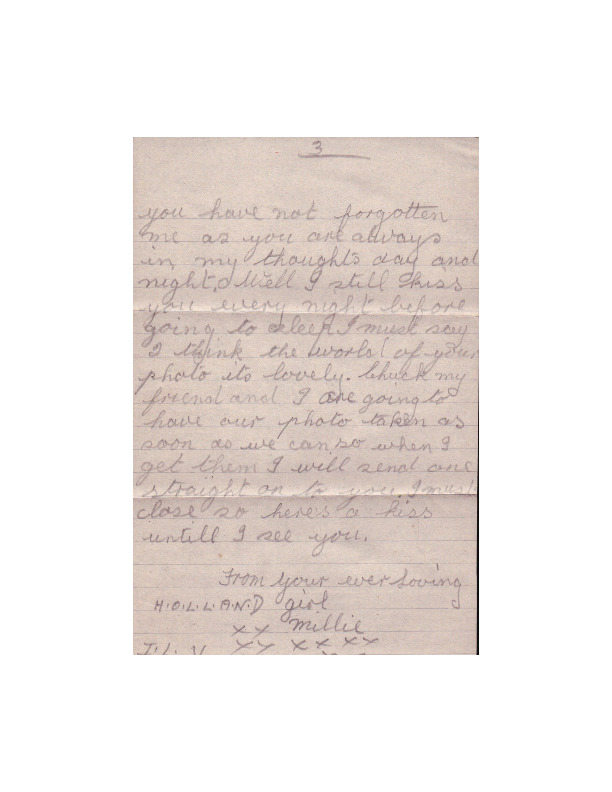 3
you have not forgotten
me as you are always
in my thoughts day and
night. Well I still kiss
you every night before
going to sleep I must say
I think the world of your
photo its lovely. Chuck my
friend and I are going to
have our photo taken as
soon as we can so when I
get them I will send one
straight on to you, I must
close so here's a kiss
untill I see you.
From your ever loving
H.O.L.L.A.N.D girl
xx Millie
I.L.Y xx xx xx